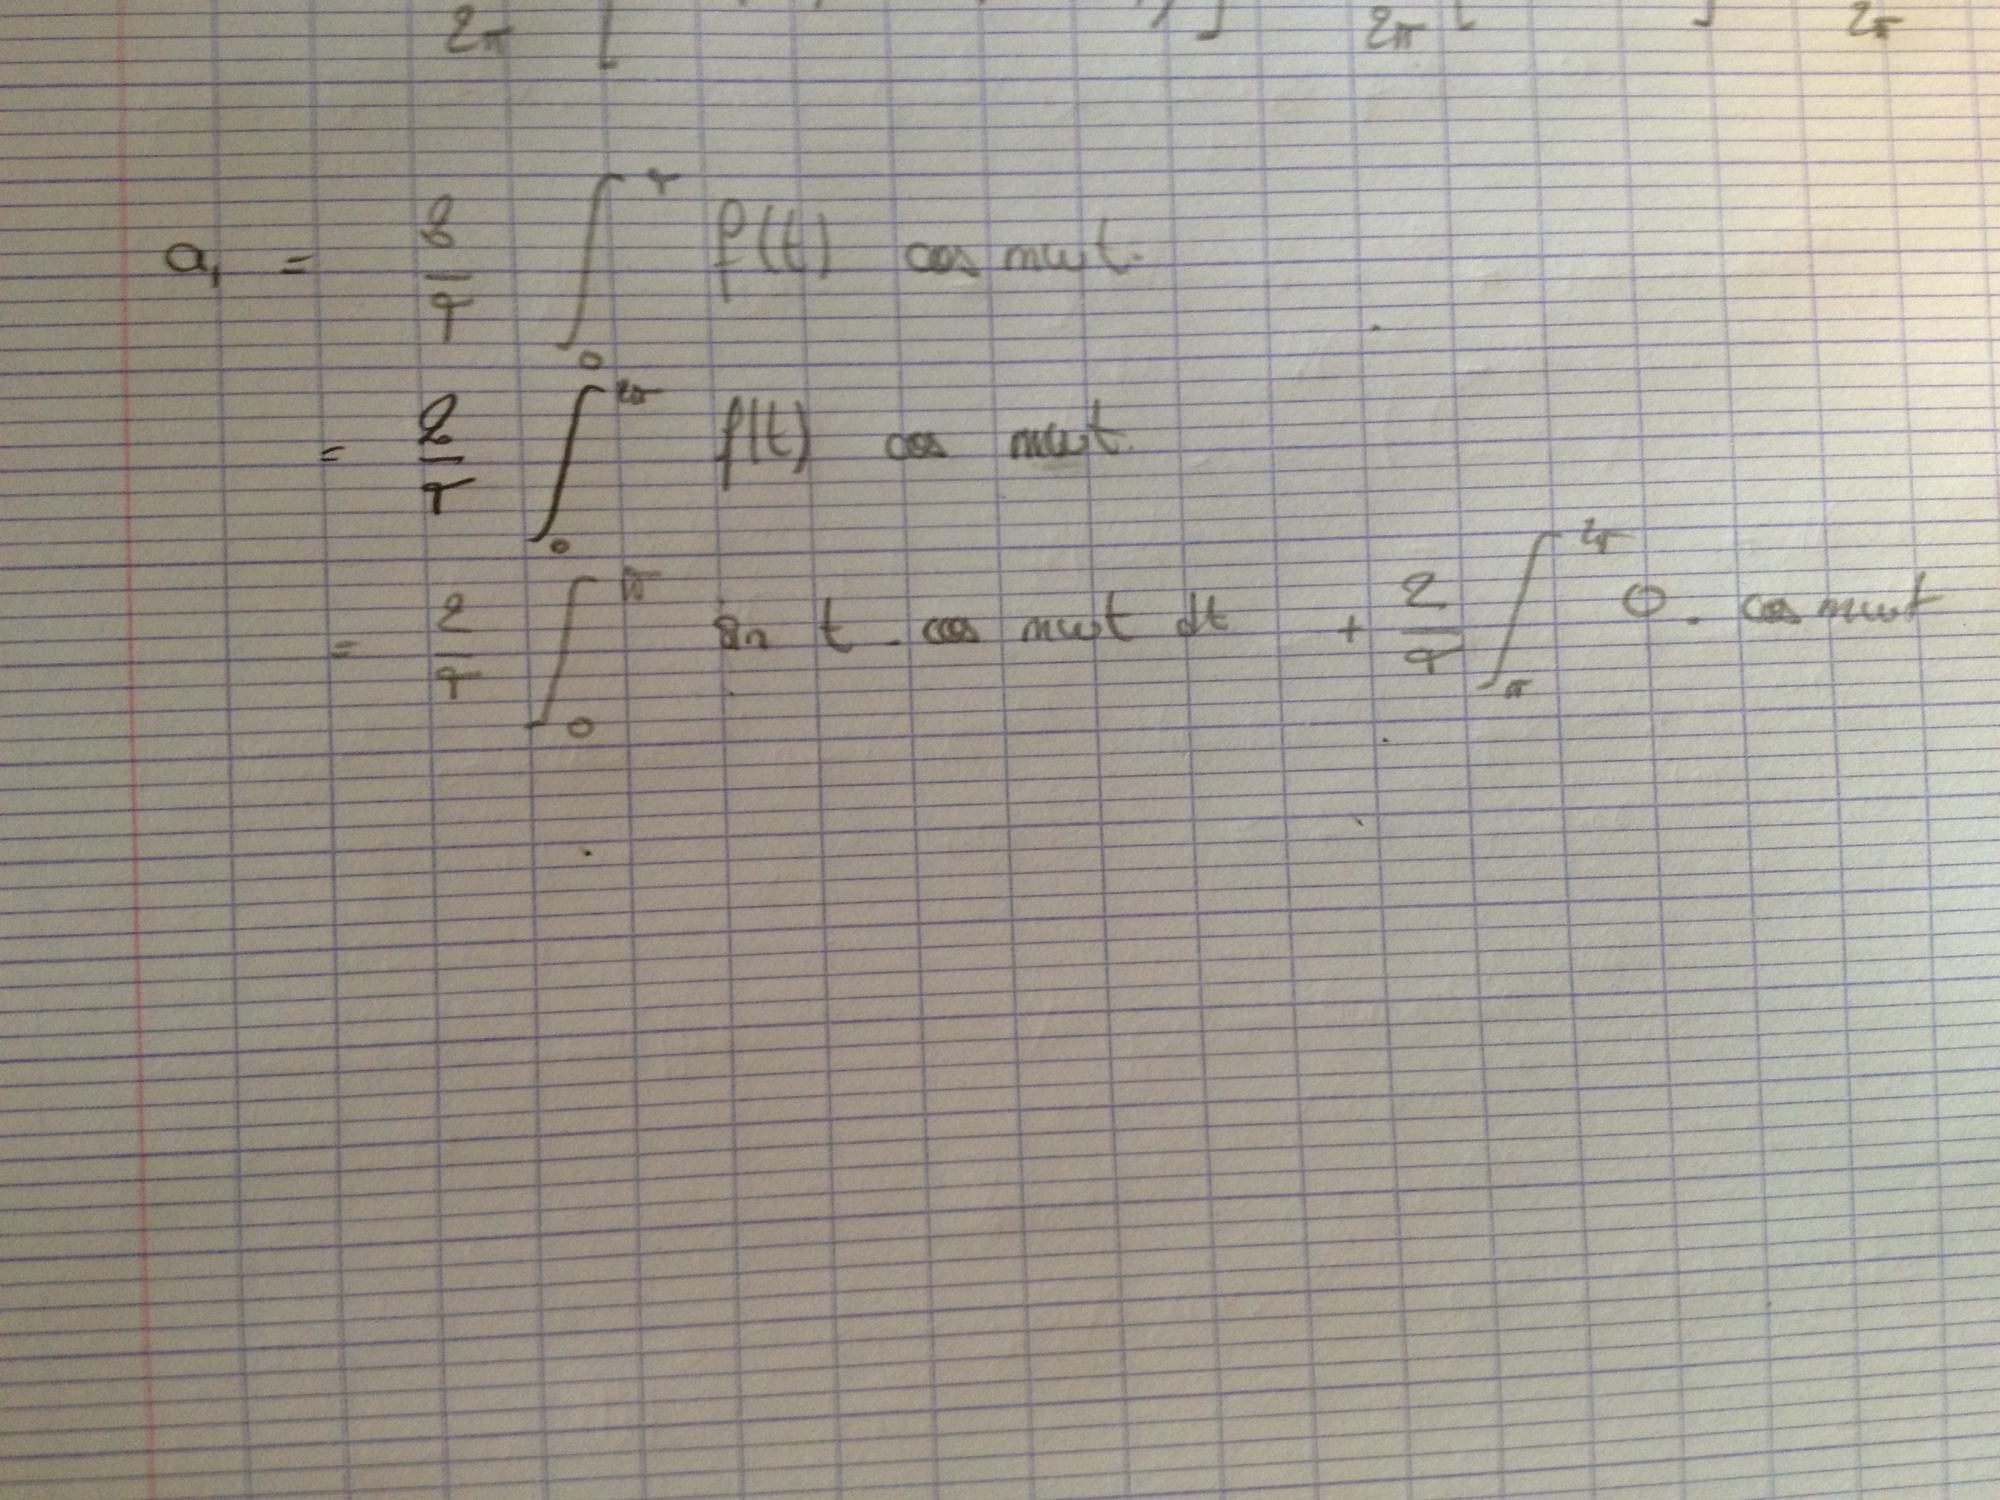 2π [ ] 2π [ ] 2π
a₁ = 2/T ∫₀ᵀ f(t) cos nωt.
= 2/T ∫₀^2π f(t) cos nωt.
= 2/T ∫₀^π sin t . cos nωt dt + 2/T ∫_π^2π 0 . cos nωt